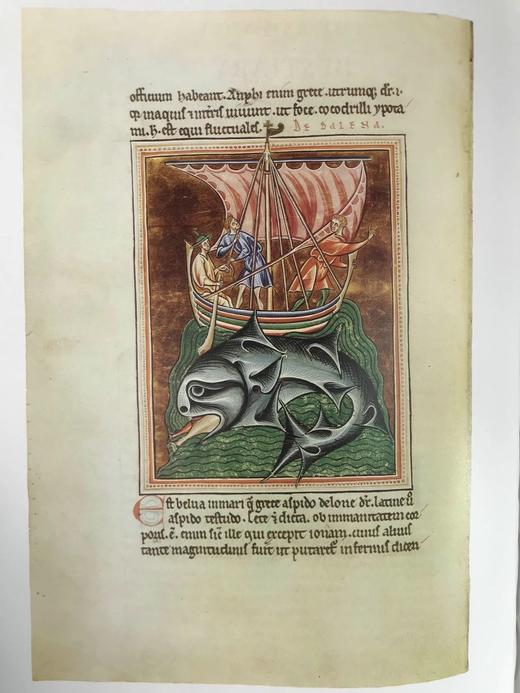 officium habeant. Amphi enim grece utrumq; dr̄. i.
qp̄ in aquis ⁊ in t̄ris uiuunt. ut foce. cocodrilli ypota
mi. h̄. est equi fluctuales.
De balena.
Est belua in mari q̄ grece aspido delone dr̄. latine ū
aspido testudo. Cete ⁊ dicta. ob immanitatem cor
poris. ē. enim sic̄ ille qui excepit ionam. cuius aluus
tante magnitudinis fuit ut putaret̄ infernus dicen